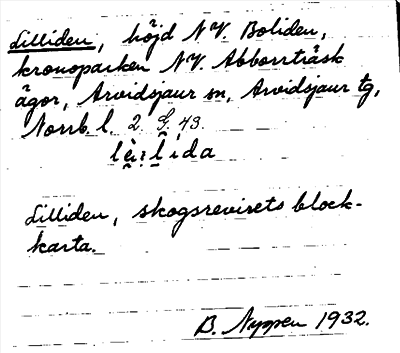 Lilliden, höjd N.V. Boliden,
kronoparken N.V. Abborrträsk
ägor, Arvidsjaur sn, Arvidsjaur tg,
Norrb. l. 2 G, 43.
Lilliden, skogsrevirets block-
karta.
B. Nyssen 1932.